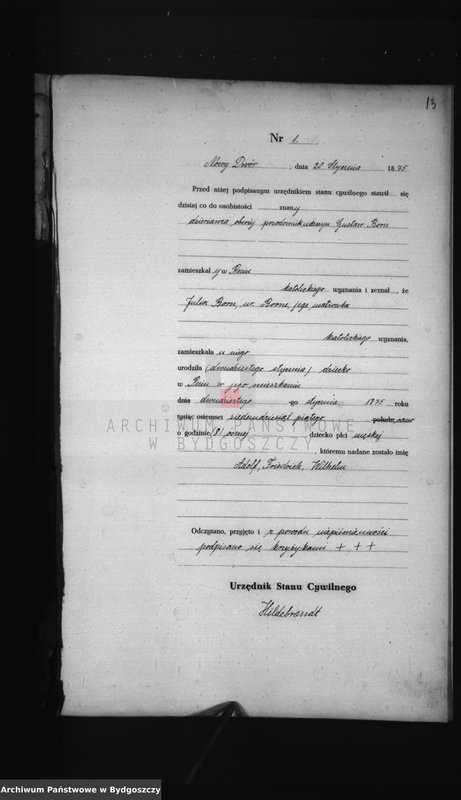 13
Nr 1.
Nowy Dwór, dnia 20 Stycznia 1875
Przed niżej podpisanym urzędnikiem stanu cywilnego stawił się
dzisiaj co do osobistości znany
dzierżawca oberży Gustaw Born
zamieszkał y w
katolickiego wyznania i zeznał, że
Julia Born, ur. Borne, jego małżonka
katolickiego wyznania,
zamieszkała u niego
urodziła (dwudziestego stycznia) dziecko
w jego mieszkaniu
dnia dwudziestego -go stycznia 1875 roku
tysiąc osiemset siedemdziesiąt piątego połudn. rano
o godzinie (8) ósmej dziecko płci męskiej
, któremu nadane zostało imię
Adolf, Friedrich, Wilhelm
Odczytano, przyjęto i z powodu niepiśmienności
podpisano się krzyżykami + + +
Urzędnik Stanu Cywilnego
Hildebrandt
ARCHIWUM PAŃSTWOWE
W BYDGOSZCZY
Archiwum Państwowe w Bydgoszczy